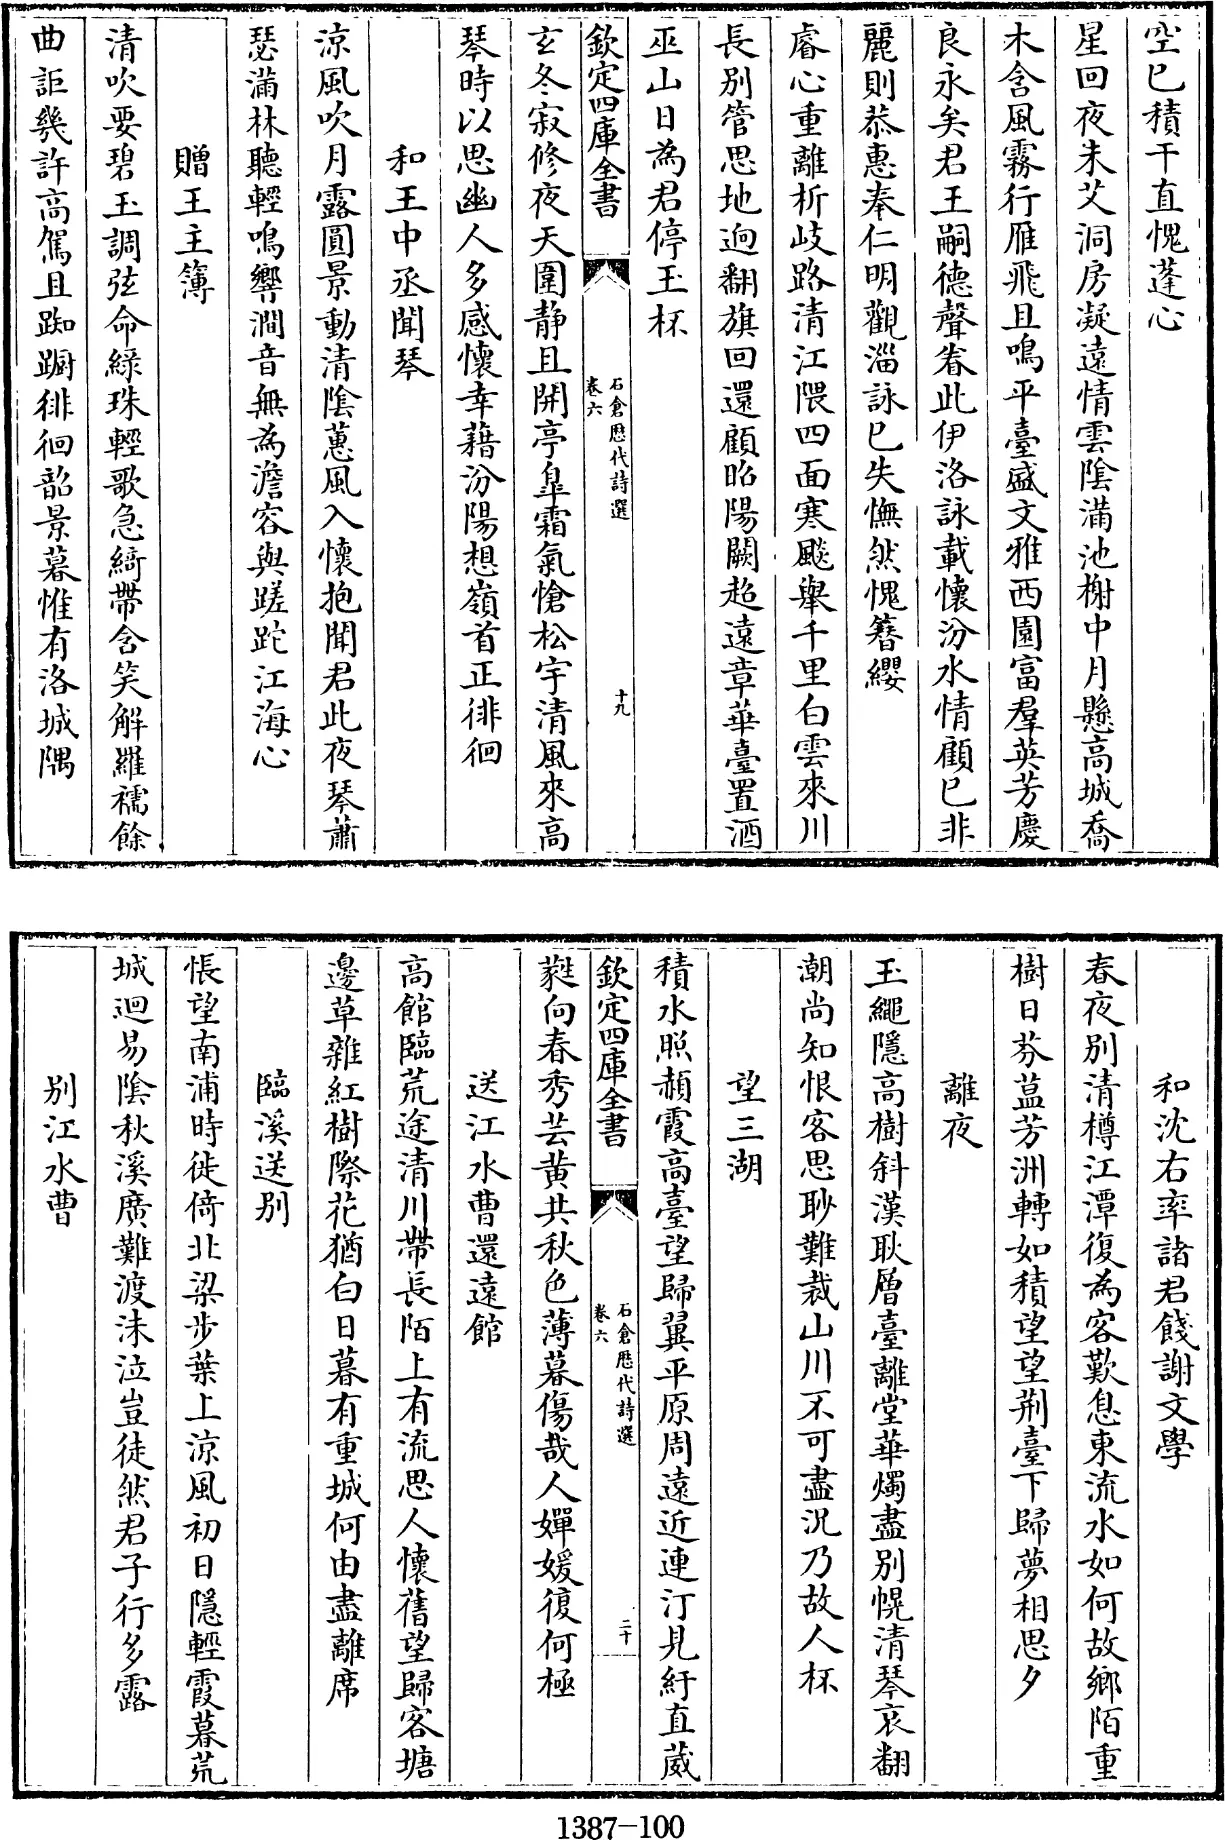 空已積干直愧蓬心
星回夜未艾洞房凝遠情雲陰滿池榭中月懸高城喬
木含風霧行雁飛且鳴平臺盛文雅西園富羣英芳慶
良永矣君王嗣德聲眷此伊洛詠載懷汾水情顧已非
麗則恭惠奉仁明觀淄詠已失憮然愧簪纓
睿心重離析岐路清江隈四面寒飈舉千里白雲來川
長别管思地逈翻旗回還顧昭陽闕超遠章華臺置酒
巫山日為君停玉杯
欽定四庫全書
石倉歴代詩選
卷六
十九
玄冬寂修夜天圍静且開亭臯霜氣愴松宇清風來高
琴時以思幽人多感懷幸藉汾陽想嶺首正徘徊
和王中丞聞琴
涼風吹月露圓景動清陰蕙風入懷抱聞君此夜琴蕭
瑟滿林聽輕鳴響澗音無為澹容與蹉跎江海心
贈王主簿
清吹要碧玉調弦命緑珠輕歌急綺帶含笑解羅襦餘
曲詎幾許高駕且踟蹰徘徊韶景暮惟有洛城隅
和沈右率諸君餞謝文學
春夜别清樽江潭復為客歎息東流水如何故鄉陌重
樹日芬葐芳洲轉如積望望荆臺下歸夢相思夕
離夜
玉繩隱高樹斜漢耿層臺離堂華燭盡别幌清琴哀翻
潮尚知恨客思眇難裁山川不可盡況乃故人杯
望三湖
積水照赬霞高臺望歸翼平原周遠近連汀見紆直葳
欽定四庫全書
石倉歴代詩選
卷六
二十
蕤向春秀芸黄共秋色薄暮傷哉人嬋媛復何極
送江水曹還遠館
高館臨荒途清川帶長陌上有流思人懷舊望歸客塘
邊草雜紅樹際花猶白日暮有重城何由盡離席
臨溪送别
悵望南浦時徙倚北梁步葉上涼風初日隱輕霞暮荒
城迥易陰秋溪廣難渡沫泣豈徒然君子行多露
别江水曹
1387-100